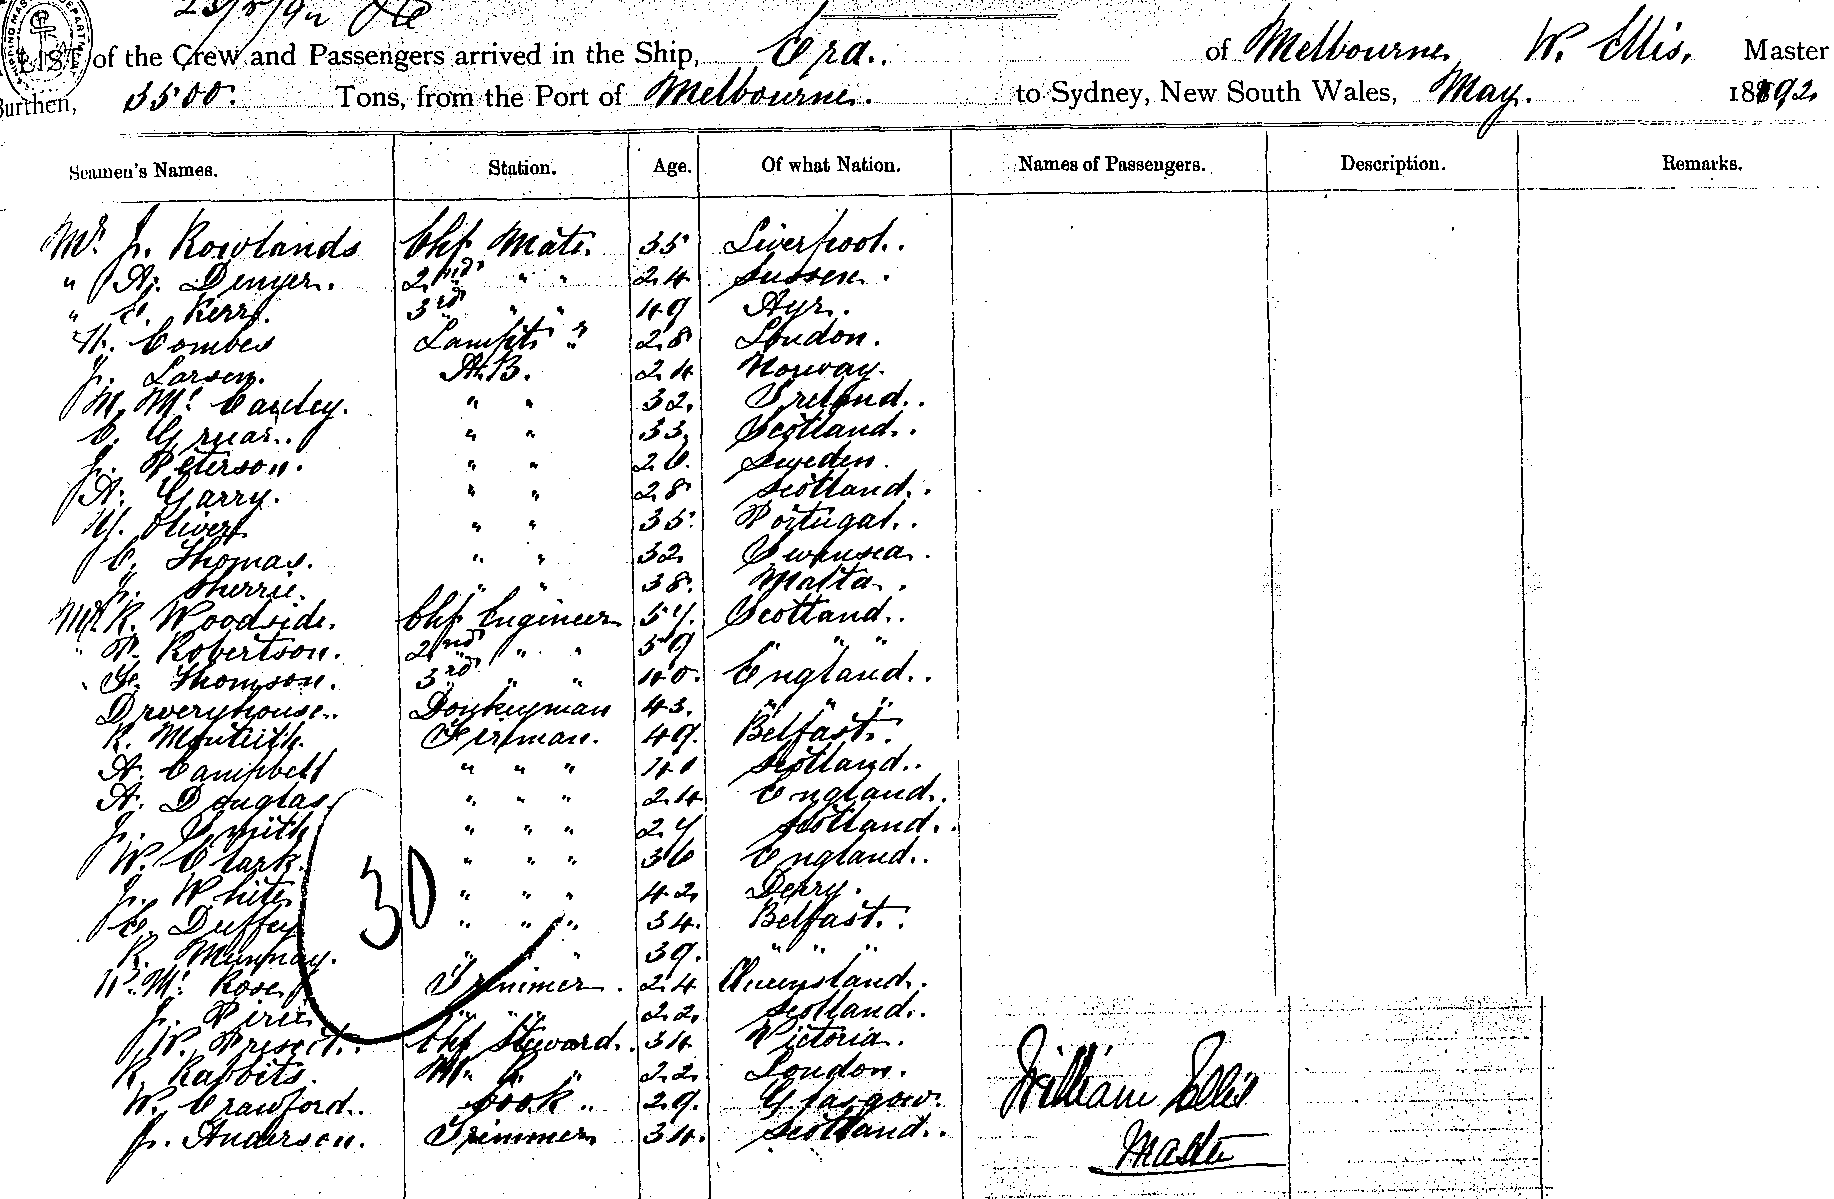 LIST of the Crew and Passengers arrived in the Ship, Era. of Melbourne W. Ellis, Master
Burthen, 3500. Tons, from the Port of Melbourne. to Sydney, New South Wales, May. 1892
Seamen's Names. Station. Age. Of what Nation. Names of Passengers. Description. Remarks.
Mr. J. Rowlands Chf Mate. 35 Liverpool.
" A. Denyer. 2nd " " 24 Sussex.
" C. Kerr. 3rd " " 49 Ayr.
H. Combes Lamps " 28 London.
J. Larsen. A.B. 24 Norway.
M. Mc Cauley. " " 32 Ireland.
C. Gruar. " " 33 Scotland.
J. Peterson. " " 26. Sweden.
A. Garry. " " 28 Scotland.
M. Olivert " " 35 Portugal.
C. Thomas. " " 32 Swansea.
J. Sherrie. " " 38. Malta.
Mr R. Woodside. Chf Engineer 57. Scotland.
" P. Robertson. 2nd " " 59 " " "
" G. Thomson. 3rd " " 40. England.
D. Donkeyman 43. " " "
R. Monteith. Firman. 49. Belfast.
A. Campbell " " " 40 Scotland.
A. Douglas. " " " 24 England.
J. Smith " " " 27 Scotland.
W. Clark. " " " 36 England.
J. White " " " 42. Derry.
C. Duffey " " " 34. Belfast.
R. Murray. " " " 39. " " "
W. Mc Rose Trimmer. 24 Queensland.
J. Pirie " " 22. Scotland.
W. Chf Steward. 34 Victoria.
R. Rabbits. " 22. London.
W. Crawford. Cook " 29. Glasgow.
J. Anderson. Trimmer 34. Scotland.
30
William Ellis
Master